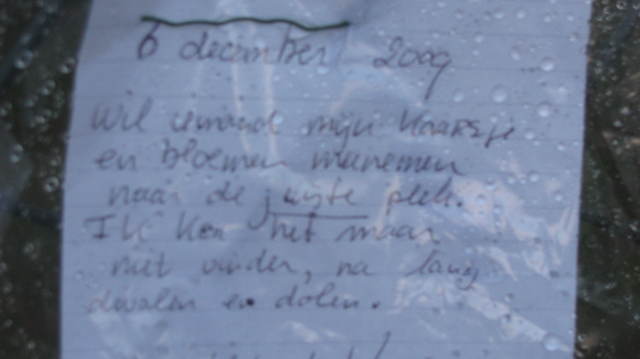 6 december 2009
Wil iemand mijn kaarsje
en bloemen meenemen
naar de juiste plek.
Ik kon het maar
niet vinden, na lang
dwalen en dolen.